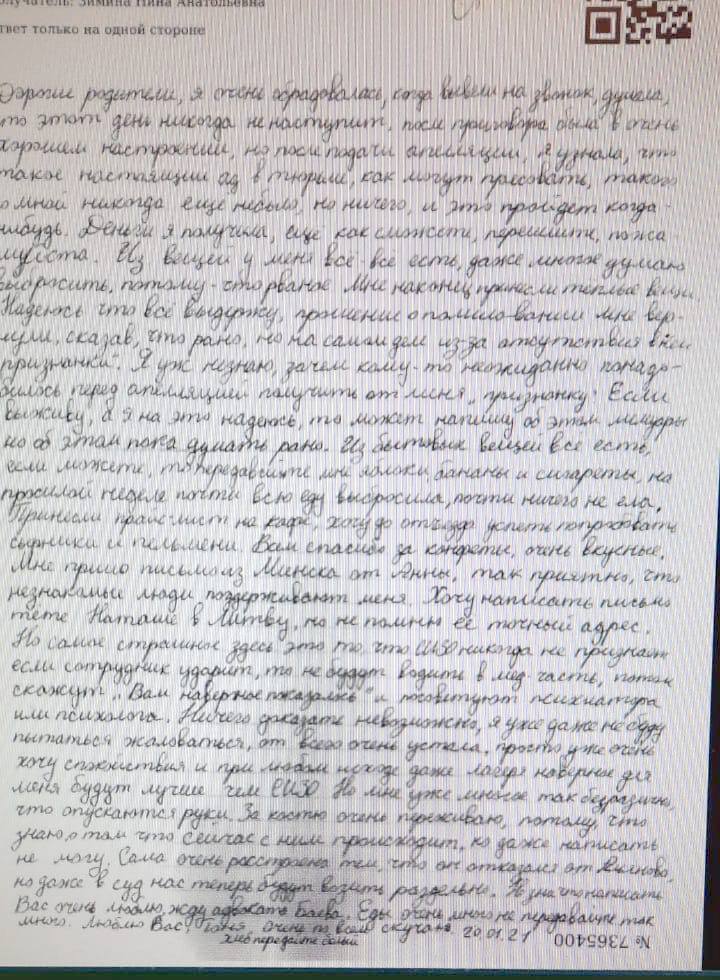 олучатель: Зимина Нина Анатольевна
твет только на одной стороне
Дорогие родители, я очень обрадовалась, когда вывели на звонок, думала,
то этот день никогда не наступит, после приговора была в очень
хорошем настроении, но после подачи апелляции, я узнала, что
такое настоящий ад в тюрьме, как могут прессовать, такого
о мной никогда еще небыло, но ничего, и это пройдет когда-
нибудь. Деньги я получила, ещё как сможете, перешлите, пожа-
луйста. Из вещей у меня всё-всё есть, даже многое думаю
выбросить, потому-что рваное. Мне наконец принесли тёплые вещи.
Надеюсь что всё выдержу, прошение о помиловании мне вер-
нули, сказав, что рано, но на самом деле из-за отсутствия в нём
"признанки". Я уж незнаю, зачем кому-то неожиданно понадо-
билось перед апелляцией получить от меня "признанку". Если
выживу, а я на это надеюсь, то может напишу об этом мемуары
но об этом пока думать рано. Из бытовых вещей все есть,
если можете, то передавайте мне яблоки, бананы и сигареты, на
прошлой неделе почти всю еду выбросила, почти ничего не ела.
Принесли прайс-лист на кафе, хочу до отъезда успеть попробовать
сырники и пельмени. Вам спасибо за конфеты, очень вкусные.
Мне пришло письмо из Минска от Анны, так приятно, что
незнакомые люди поддерживают меня. Хочу написать письмо
тете Наташе в Литву, но не помню её точный адрес.
Но самое страшное здесь это то, что СИЗО никогда не признает
если сотрудник ударит, то не будут водить в мед-часть, потом
скажут "Вам наверное показалось" и посоветуют психиатора
или психолога. Ничего доказать невозможно, я уже даже не буду
пытаться жаловаться, от всего очень устала, просто уже очень
хочу спокойствия и при любом исходе даже лагеря наверное для
меня будут лучше чем СИЗО. Но мне уже многое так безразлично,
что опускаются руки. За костю очень переживаю, потому, что
знаю о том что сейчас с ним происходит, но даже написать
не могу. Сама очень расстроена тем, что он отказался от
но даже в суд нас теперь будут возить раздельно. Не знаю что написать
Вас очень люблю, жду адвоката Баева. Еды очень много не передавайте так
много. Люблю Вас, Таня, очень по всем скучаю. 20.01.21
хлеб передайте белый
№ 7365400